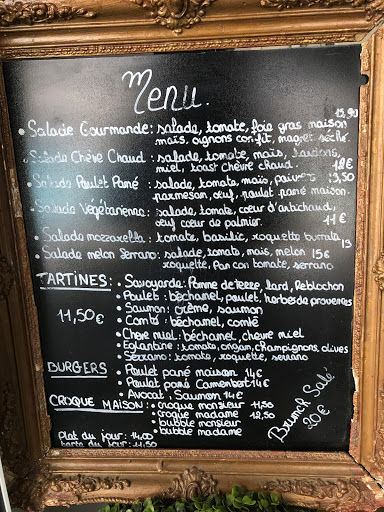 Menu.
15,90
• Salade Gourmande : salade, tomate, foie gras maison
maïs, oignons confit, magret séché.
• Salade Chèvre Chaud : salade, tomate, maïs, lardons,
miel, toast chèvre chaud. 18€
• Salade Poulet Pané : salade, tomate, maïs, poivrons 13,50
parmesan, oeuf, poulet pané maison.
• Salade Végétarienne : salade, tomate, coeur d'artichaud,
oeuf coeur de palmier. 11€
• Salade mozzarella : tomate, basilic, roquette burrata 13
• Salade melon Serrano : salade, tomate, maïs, melon 15€
roquette, Pan con tomate, serrano
TARTINES : • Savoyarde : Pomme de terre, lard, Reblochon
• Poulet : béchamel, poulet, herbes de provences
11,50€ • Saumon : crème, saumon
• Comté : béchamel, comté
• Chèvre miel : béchamel, chèvre miel
• Eglantine : tomate, origan, champignons, olives
• Serrano : tomate, roquette, serrano
BURGERS • Poulet pané maison 14€
• Poulet pané Camembert 14€
• Avocat, Saumon 14€
CROQUE MAISON : • croque monsieur 11,50
• croque madame 12,50
• bubble monsieur
• bubble madame
Plat du jour : 14,00
Tarte du jour : 11,50
Brunch Salé
20€